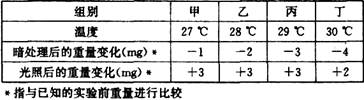 组别 甲 乙 丙 丁
温度 27℃ 28℃ 29℃ 30℃
暗处理后的重量变化(mg)* -1 -2 -3 -4
光照后的重量变化(mg)* +3 +3 +3 +2
*指与已知的实验前重量进行比较